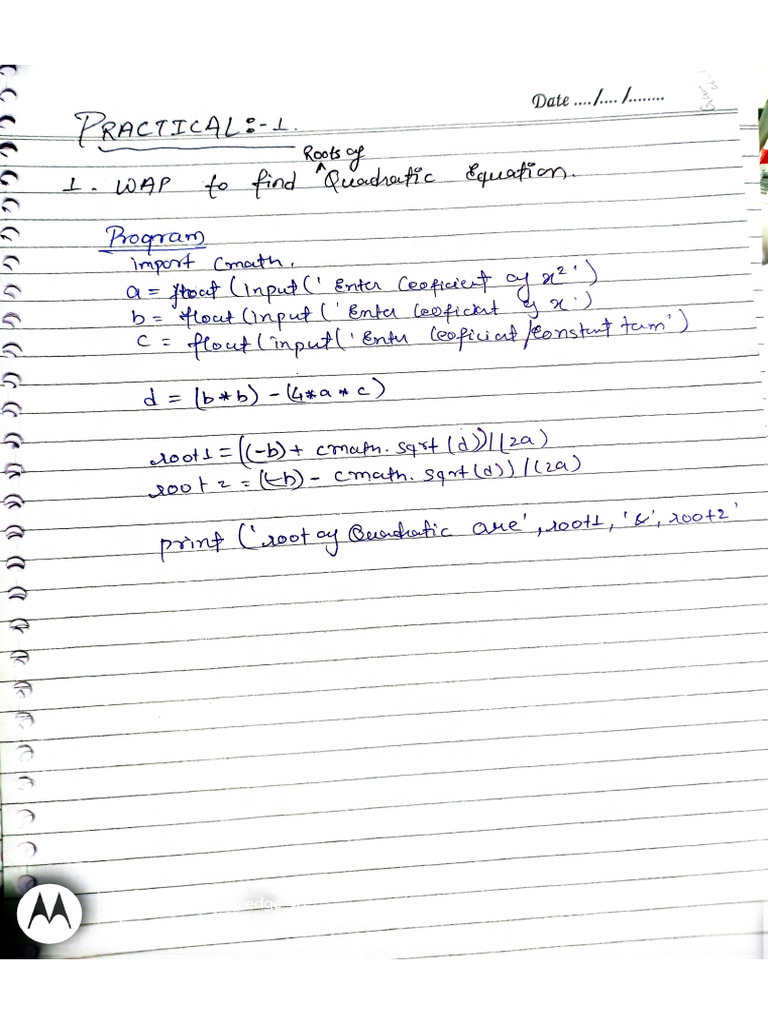 Date ..../..../........
PRACTICAL:-1.
Roots of
1. WAP to find ^ Quadratic Equation.
Program
import Cmath.
a = float (Input (' Enter Coeoficient of x²')
b = float (input (' Enter Coeoficient of x')
c = float (input (' Enter Coeoficient/Constant term')
d = (b*b) - (4*a*c)
root1 = ((-b) + cmath. sqrt (d)) / (2a)
root 2 = (-b) - cmath. sqrt (d)) / (2a)
print ('root of Quadratic are', root1, '&', root2'